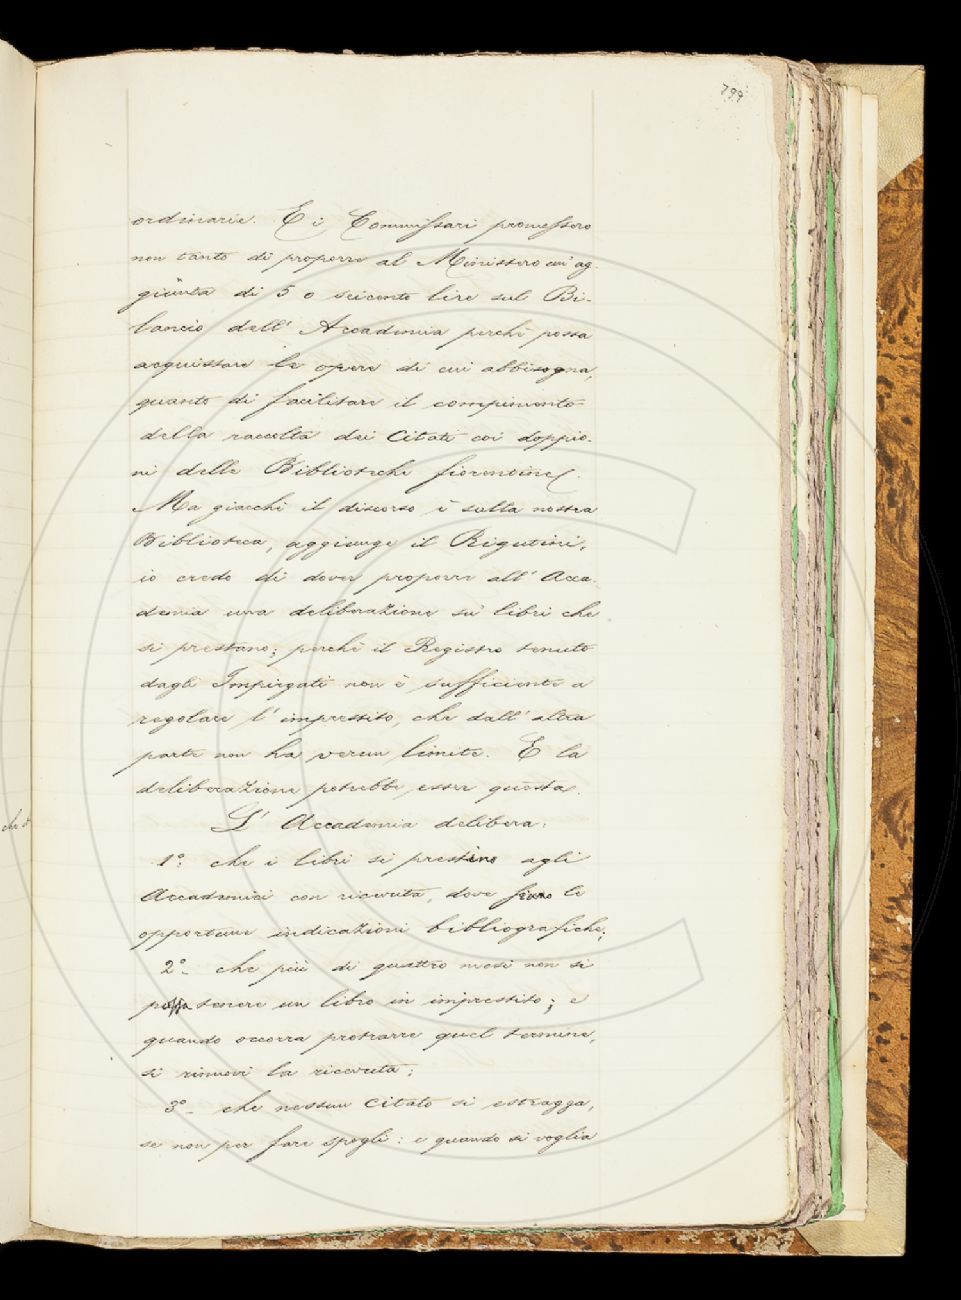 799
ordinarie. E i Commissari promessero
non tanto di proporre al Ministero un' ag-
giunta di 5 o seicento lire sul Bi-
lancio dell' Accademia perchè possa
acquistare le opere di cui abbisogna,
quanto di facilitare il compimento
della raccolta dei Citati coi doppio-
ni delle Biblioteche fiorentine.
Ma giacchè il discorso è sulla nostra
Biblioteca, aggiunge il Rigutini,
io credo di dover proporre all' Acca-
demia una deliberazione su' libri che
si prestano; perchè il Registro tenuto
dagli Impiegati non è sufficiente a
regolare l' imprestito, che dall' altra
parte non ha verun limite. E la
deliberazione potrebbe esser questa.
L' Accademia delibera:
1º: che i libri si prestino agli
Accademici con ricevuta, dove siano le
opportune indicazioni bibliografiche;
2º- che più di quattro mesi non si
possa tenere un libro in imprestito; e
quando occorra protrarre quel termine,
si rinnovi la ricevuta;
3º- che nessun Citato si estragga,
se non per fare spogli: e quando si voglia